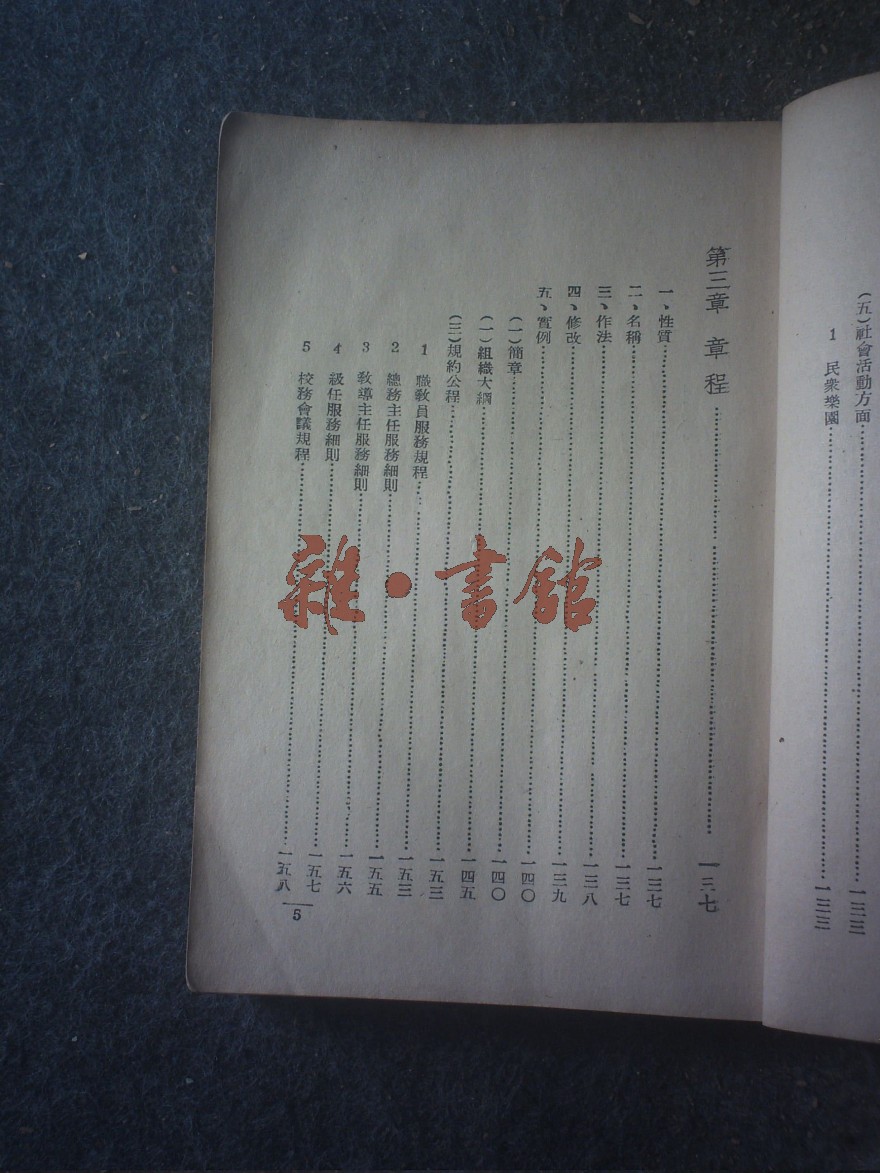 (五)社會活動方面……一三三
1 民衆樂園……一三三
第三章 章程……一三七
一、性質……一三七
二、名稱……一三七
三、作法……一三八
四、修改……一三九
五、實例……一四〇
(一)簡章……一四〇
(一)組織大綱……一四五
(三)規約公程……一五三
1 職教員服務規程……一五三
2 總務主任服務細則……一五五
3 教導主任服務細則……一五六
4 級任服務細則……一五七
5 校務會議規程……一五八
5
雜·書館